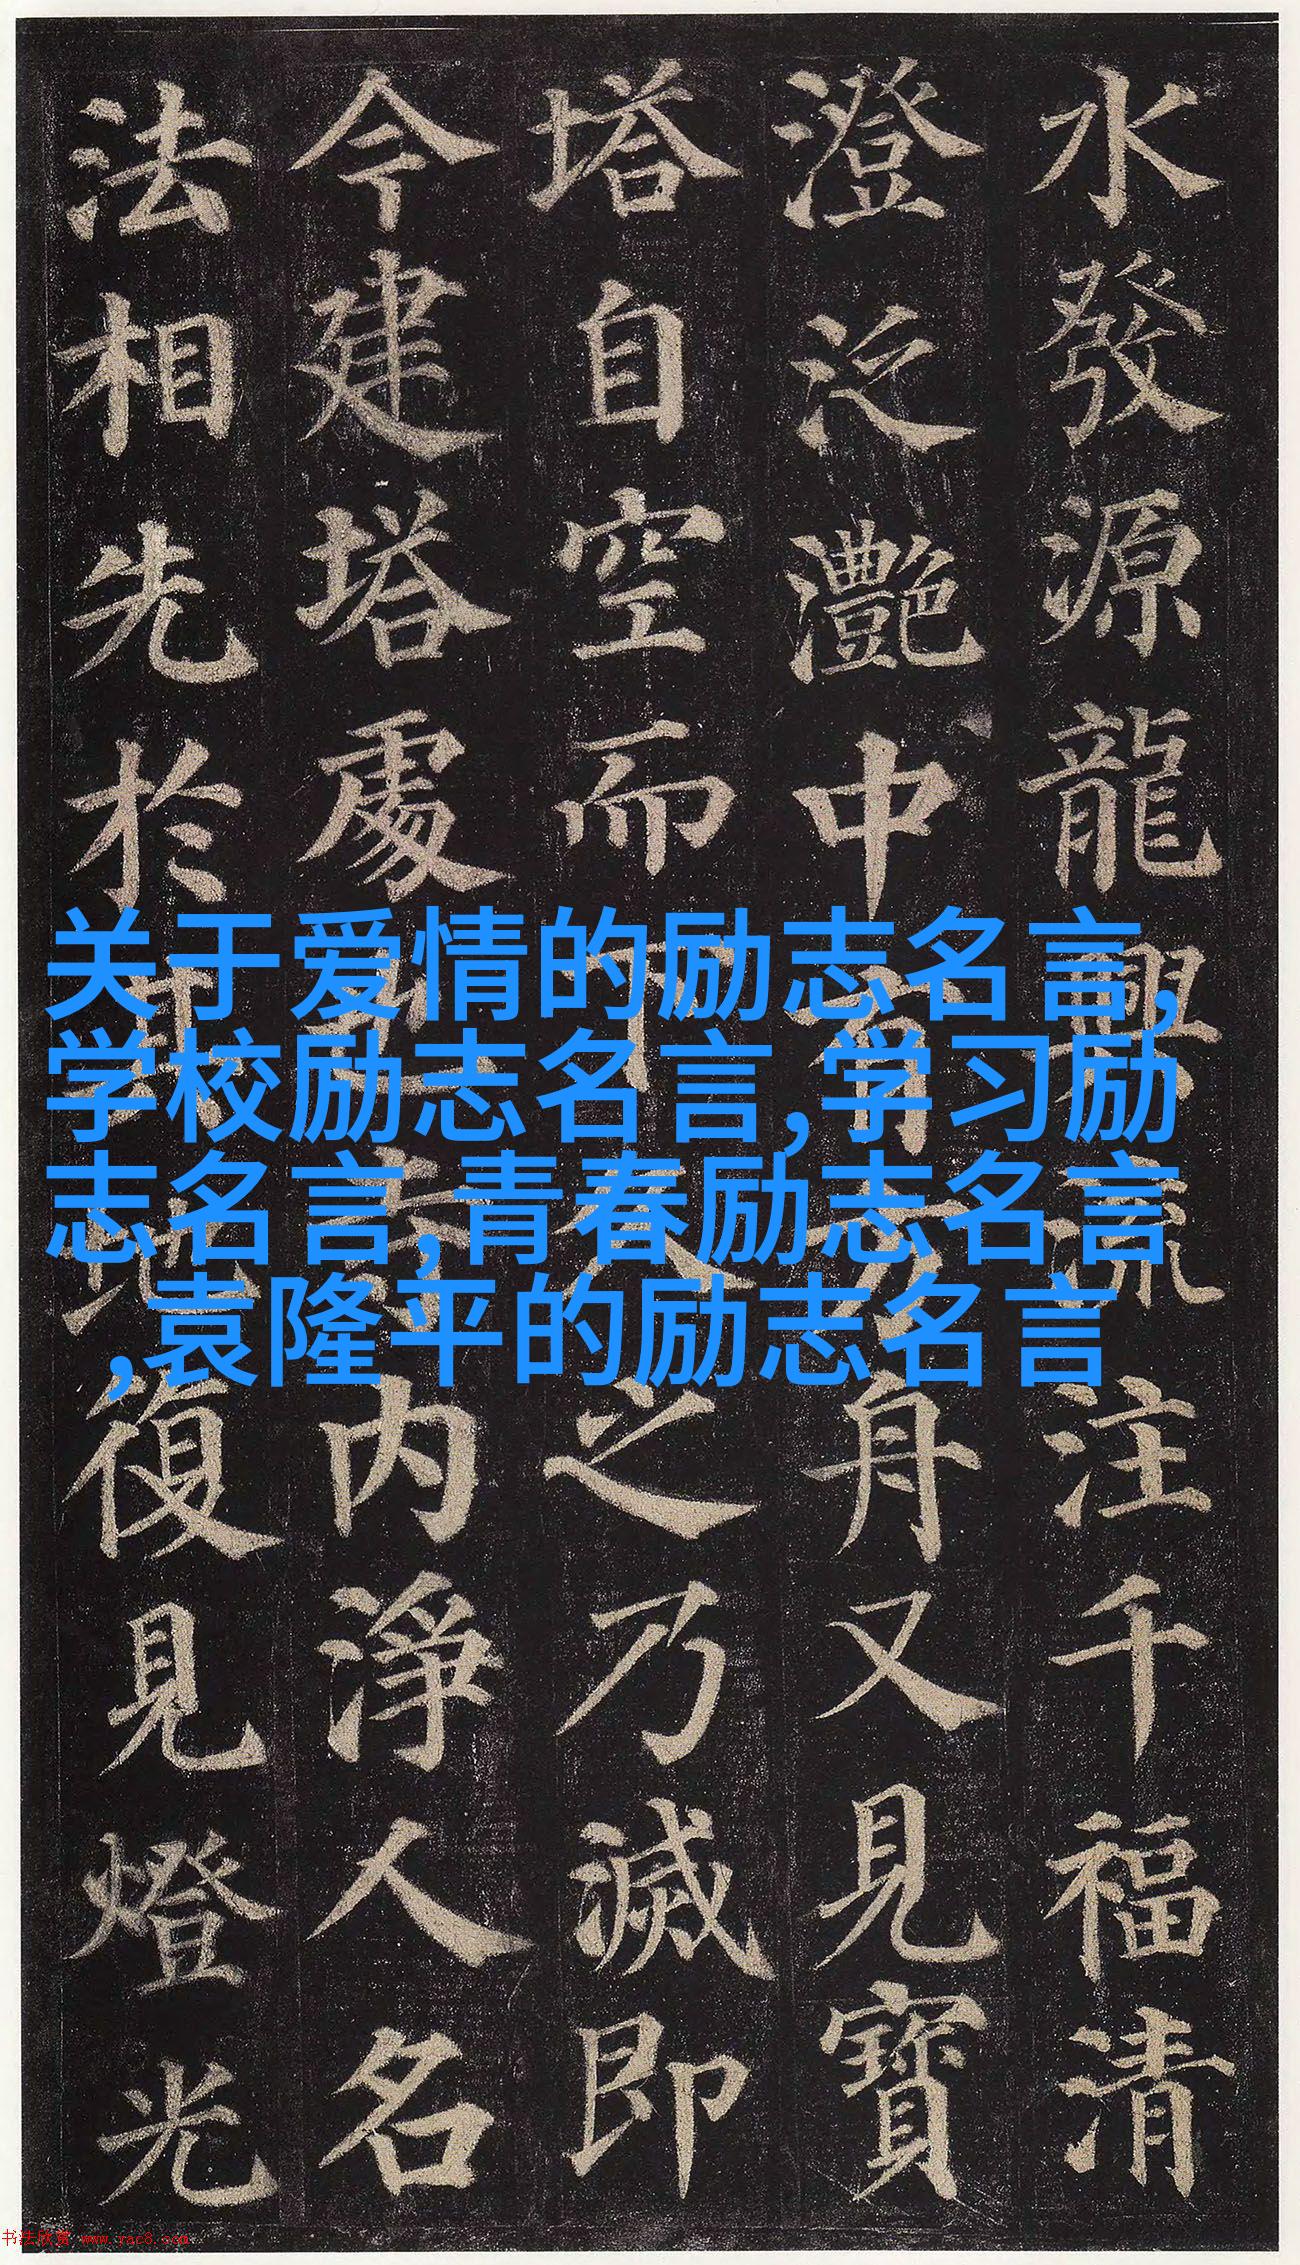 水發源龍興流注千福清
澄泛灩中有方舟又見寶
塔自空而下久之乃滅即
今建塔處也寺内淨人名
法相先於其地復見燈光
关于爱情的励志名言,
学校励志名言,学习励
志名言,青春励志名言
,袁隆平的励志名言
书法欣赏 www.yac8.com